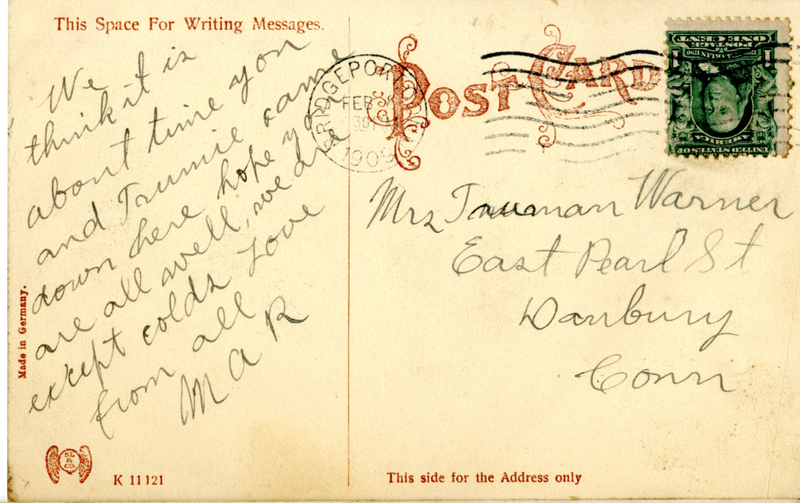 This Space For Writing Messages.
We
think it is
about time you
and Trumie came
down here hope you
are all well, we are
except colds Love
from all
M A R
Made in Germany.
K 11121
POST CARD
BRIDGEPORT
FEB
1909
ONE CENT
POSTAGE
UNITED STATES OF
AMERICA
Mrs Truman Warner
East Pearl St
Danbury
Conn
This side for the Address only